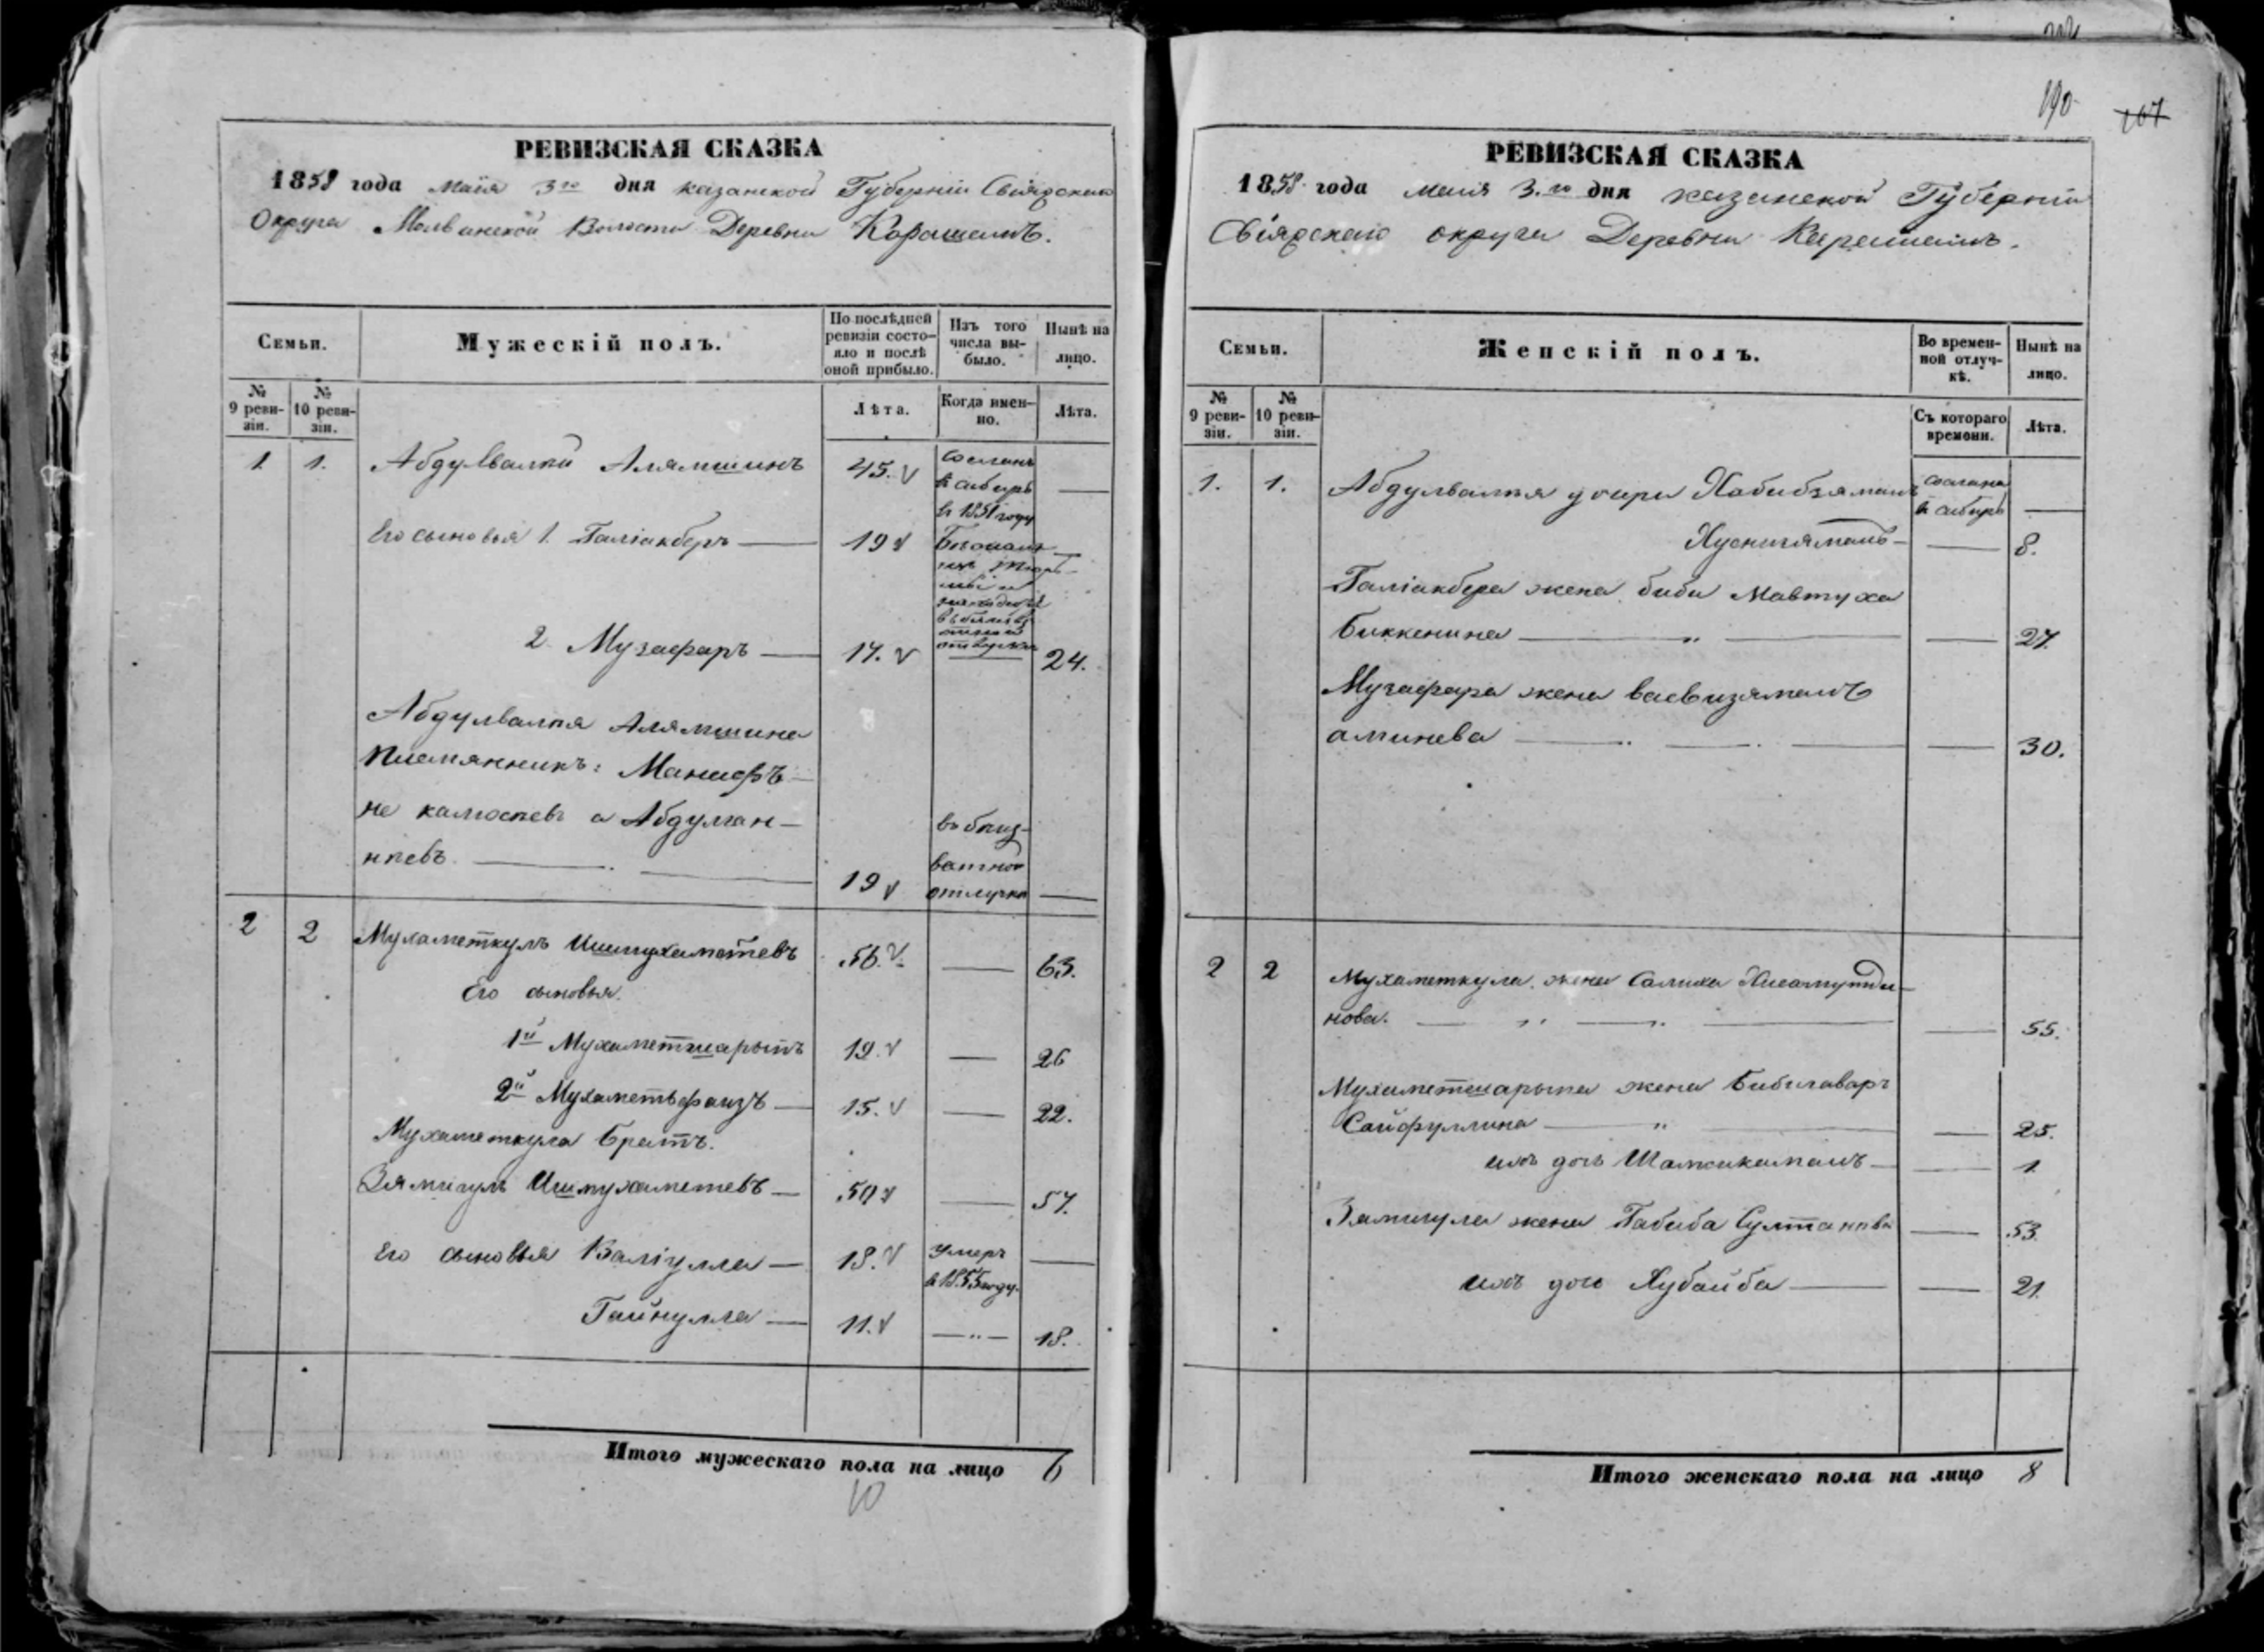 190
167
РЕВИЗСКАЯ СКАЗКА
1858 года Маия 3го дня казанской Губерніи Свіяжскаго
Округа Молвинской Волости Деревни Карашамъ.
Семьи.
Мужескій полъ.
По послѣдней ревизіи состояло и послѣ оной прибыло.
Изъ того числа выбыло.
Нынѣ на лицо.
№ 9 ревизіи.
№ 10 ревизіи.
Лѣта.
Когда именно.
Лѣта.
1. 1. Абдулвалпи Алямшинъ 45. Сосланъ
в сибирь —
в 1851 году
Его сыновья 1. Галіакберъ — 19
2. Музафаръ — 17. — 24.
Абдулвалпя Алямшина
племянникъ:
не а Абдулган-
въ без-
19 отлучки —
2 2 Мухаметкулъ Ишмухаметевъ 56. — 63.
Его сыновья.
1й Мухаметшарыпъ 19. — 26
2й Мухаметьфаизъ — 15. — 22.
Мухаметкула братъ.
Зямигулъ Ишмухаметевъ — 50 — 57.
Его сыновья Валіулла — 18. умеръ —
в 1855 году.
Гайнулла — 11. — „ — 18.
Итого мужескаго пола на лицо 6
10
РЕВИЗСКАЯ СКАЗКА
1858 года Маия 3.го дня казанской Губерніи
Свіяжскаго округа Деревни Карашамъ.
Семьи.
Женскій полъ.
Во временной отлучкѣ.
Нынѣ на лицо.
№ 9 ревизіи.
№ 10 ревизіи.
Съ котораго времени.
Лѣта.
1. 1. Абдулвалпя дочери Хабибзямалъ сослана
в сибирь —
Хуснизямалъ — — 8.
Галіакбера жена биби Мавтуха
Биккенина — „ — — 27.
Музафара жена
аминева — „ — . — — 30.
2 2 Мухаметкула жена Салиха Хисамутди-
нова. — „ — „ — — 55.
Мухаметшарыпа жена Бибигаваръ
Сайфуллина — „ — — 25.
ихъ дочь Шамсикамалъ — — 1.
Зямигула жена Габиба Султанова — 53.
ихъ дочь Хубайба — — 21.
Итого женскаго пола на лицо 8